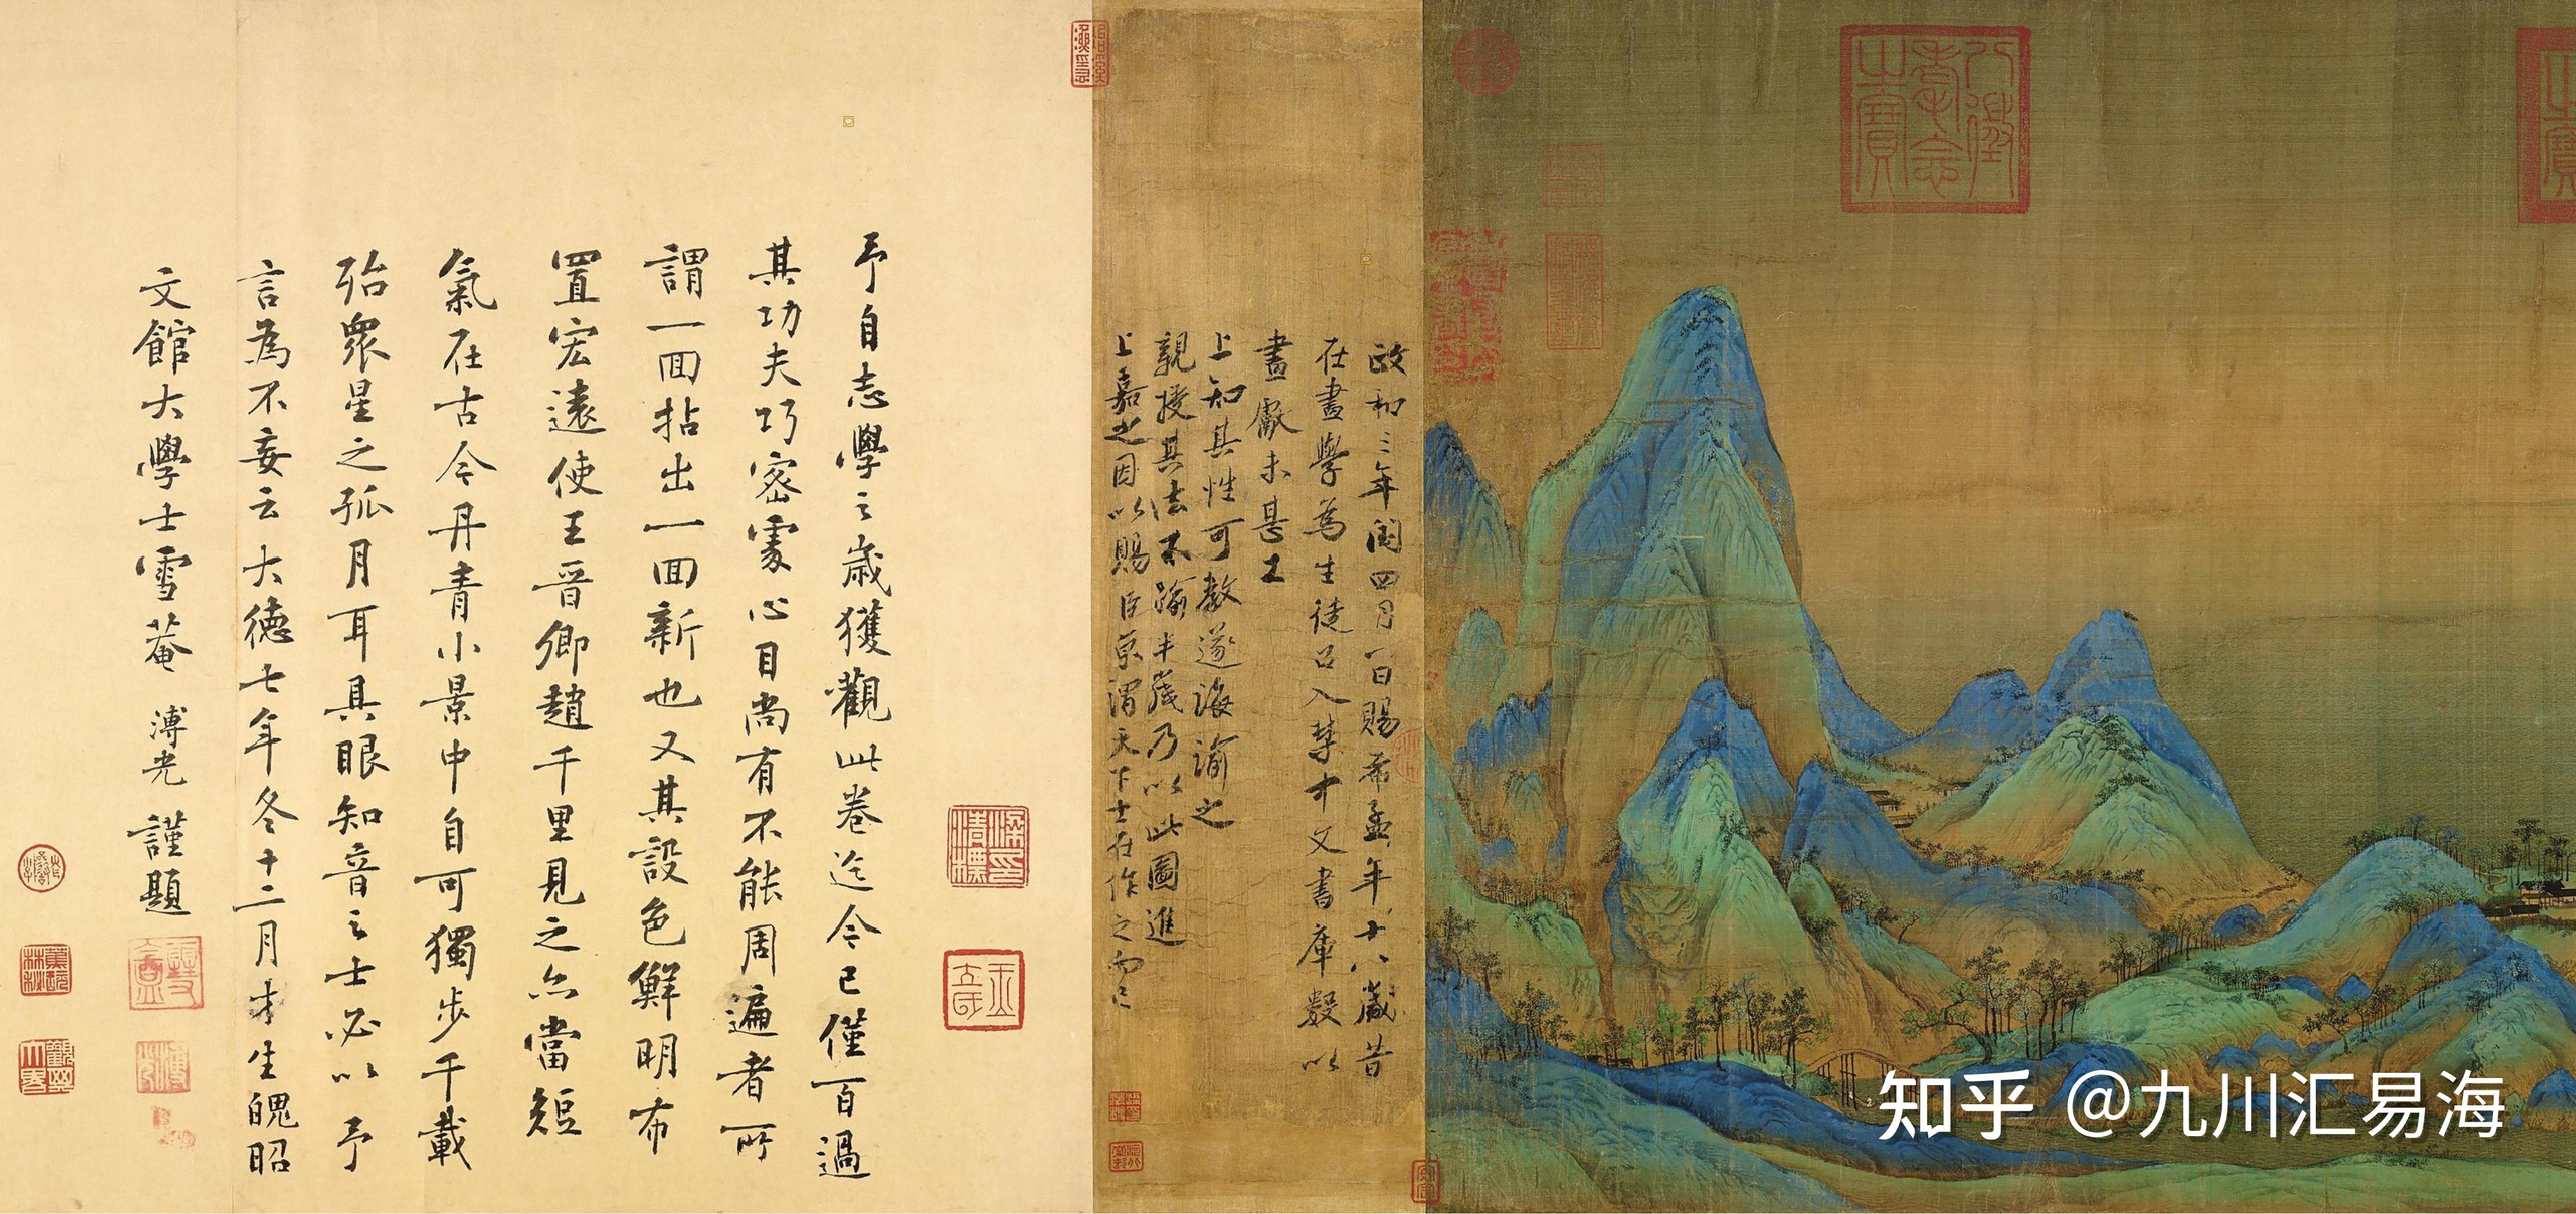 政和三年閏四月一日賜希孟年十八歲昔
在畫學為生徒召入禁中文書庫數以
畫獻未甚工
上知其性可教遂誨諭之
親授其法不踰半歲乃以此圖進
上嘉之因以賜臣京謂天下士在作之而已
予自志學之歲獲觀此卷迄今已僅百過
其功夫巧密處心目尚有不能周遍者所
謂一回拈出一回新也又其設色鮮明布
置宏遠使王晉卿趙千里見之亦當短
氣在古今丹青小景中自可獨步千載
殆眾星之孤月耳具眼知音之士必以予
言為不妄云大德七年冬十二月才生魄昭
文館大學士雪菴溥光謹題
知乎 @九川汇易海